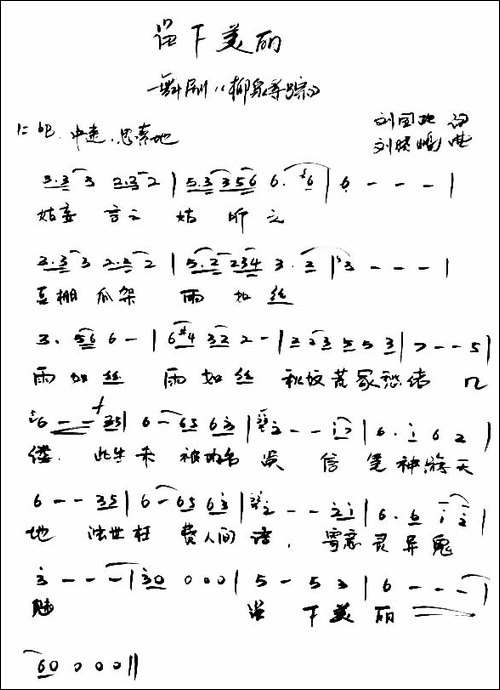 留下美丽
—舞剧《柳泉寻踪》
1=bE 中速、思索地
刘国 词
刘 曲
3·3 3 2·3 2 | 5·3 356 6· #6 | 6 - - - |
姑妄言之 姑听之
3·3 3 2·5 2 | 5·2 234 3·2 | 3 - - - |
豆棚瓜架 雨如丝
3· 56 6 - | 6#4 32 2 - | 2 23 5 5 3 | 7 - - 5 |
雨如丝 雨如丝 秋坟荒冢愁绪几
6 - - 35 | 6 - 65 63 | 2 - - | 6· i 6 2 |
缕. 此生未被功名误 信笔神游天
6 - - 35 | 6 - 65 63 | 2 - - 2i | 6· 6 i 2 |
地 浊世枉费人间语, 寄意灵异鬼
3 - - - | 30 0 0 0 | 5 - 5 3 | 6 - - - |
魅 留下美丽
60 0 0 0 ||